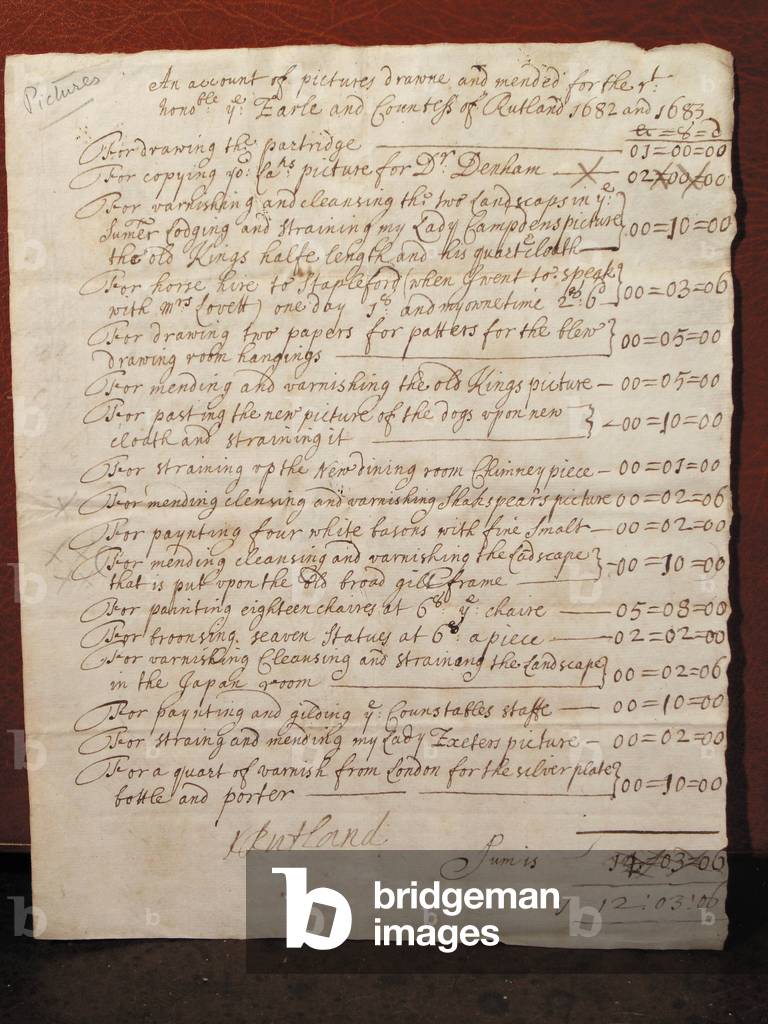 Pictures
An account of pictures drawne and mended for the rt:
honoble ye: Earle and Countess of Rutland 1682 and 1683
li = s = d
For drawing the partridge 01=00=00
For copying yor: Lapps picture for Dr: Denham 02=00=00
For varnishing and cleansing the two Landscaps in ye:
Sumer Lodging and straining my Lady Campdens picture 00=10=00
the old Kings halfe length and his quarter cloath
For horse hire to Stapleford (when I went to: speak
with Mrs Lovett) one day 1s: and my owne time 2s: 6d 00=03=06
For drawing two papers for patters for the blew
drawing room hangings 00=05=00
For mending and varnishing the old Kings picture 00=05=00
For pasting the new picture of the dogs upon new
cloath and straining it 00=10=00
For straining up the New dining room Chimney piece 00=01=00
For mending clensing and varnishing Shakspears picture 00=02=06
For paynting four white basons with fine Smalt 00=02=00
For mending cleansing and varnishing the Ladscape
that is put upon the old broad gilt frame 00=10=00
For painting eighteen chaires at 6s: ye: chaire 05=08=00
For broonsing seaven Statues at 6s: a piece 02=02=00
For varnishing Cleansing and straining the Landscape
in the Japan room 00=02=06
For paynting and gilding ye: Counstables staffe 00=10=00
For straing and mending my Lady Exeters picture 00=02=00
For a quart of varnish from London for the silver plate
bottle and porter 00=10=00
Rutland
Sum is 14=03=06
12:03:06
bridgeman
images